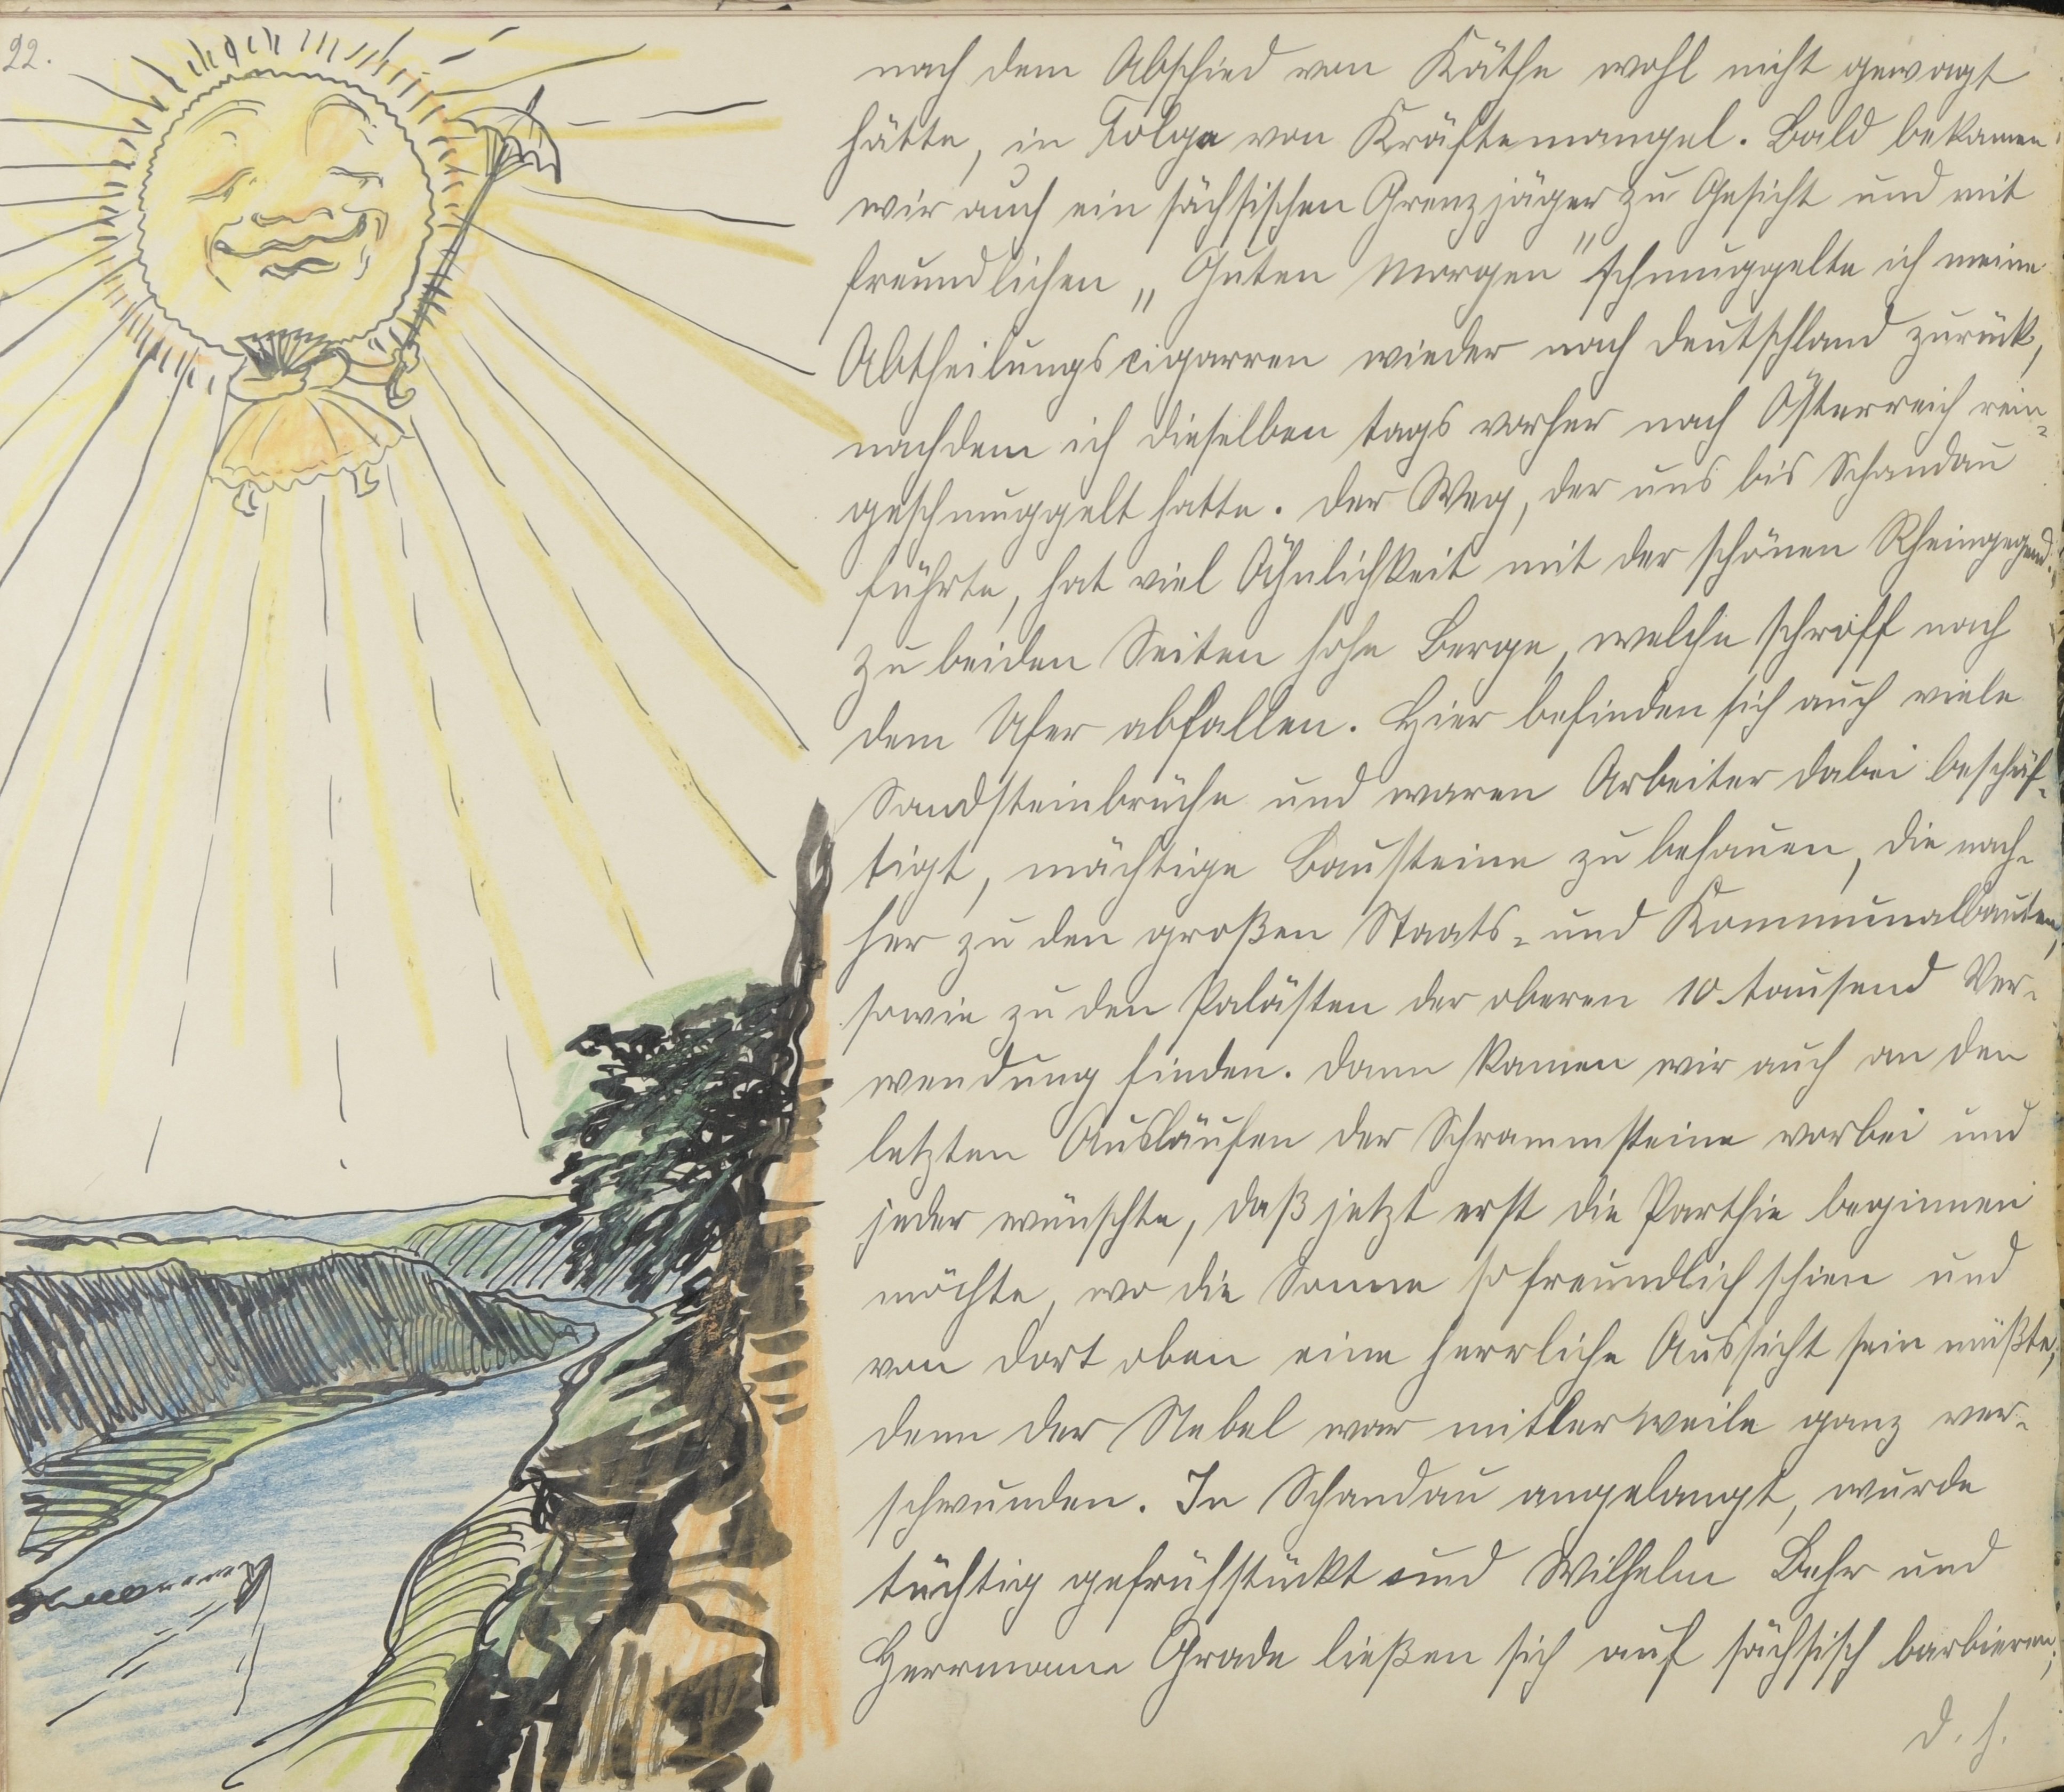 22.
nach dem Abschied von Käthe wohl nicht gewagt
hätte, in Folge von Kräftemangel. Bald bekamen
wir auch ein sächsischen Grenzjäger zu Gesicht und mit
freundlichen „Guten Morgen" schmuggelte ich meine
Abtheilungscigarren wieder nach Deutschland zurück,
nachdem ich dieselben tags vorher nach Österreich rein-
geschmuggelt hatte. Der Weg, der uns bis Schandau
führte, hat viel Ähnlichkeit mit der schönen Rheingegend.
Zu beiden Seiten hohe Berge, welche schroff nach
dem Ufer abfallen. Hier befinden sich auch viele
Sandsteinbrüche und waren Arbeiter dabei beschäf-
tigt, mächtige Bausteine zu behauen, die nach-
her zu den großen Staats- und Kommunalbauten,
sowie zu den Palästen der oberen 10 tausend Ver-
wendung finden. Dann kamen wir auch an den
letzten Ausläufen der Schrammsteine vorbei und
jeder wünschte, daß jetzt erst die Parthie beginnen
möchte, wo die Sonne so freundlich schien und
von dort oben eine herrliche Aussicht sein müßte,
denn der Nebel war mittlerweile ganz ver-
schwunden. In Schandau angelangt, wurde
tüchtig gefrühstückt und Wilhelm Behr und
Herrmann Grade ließen sich auf sächsisch barbieren,
d. h.